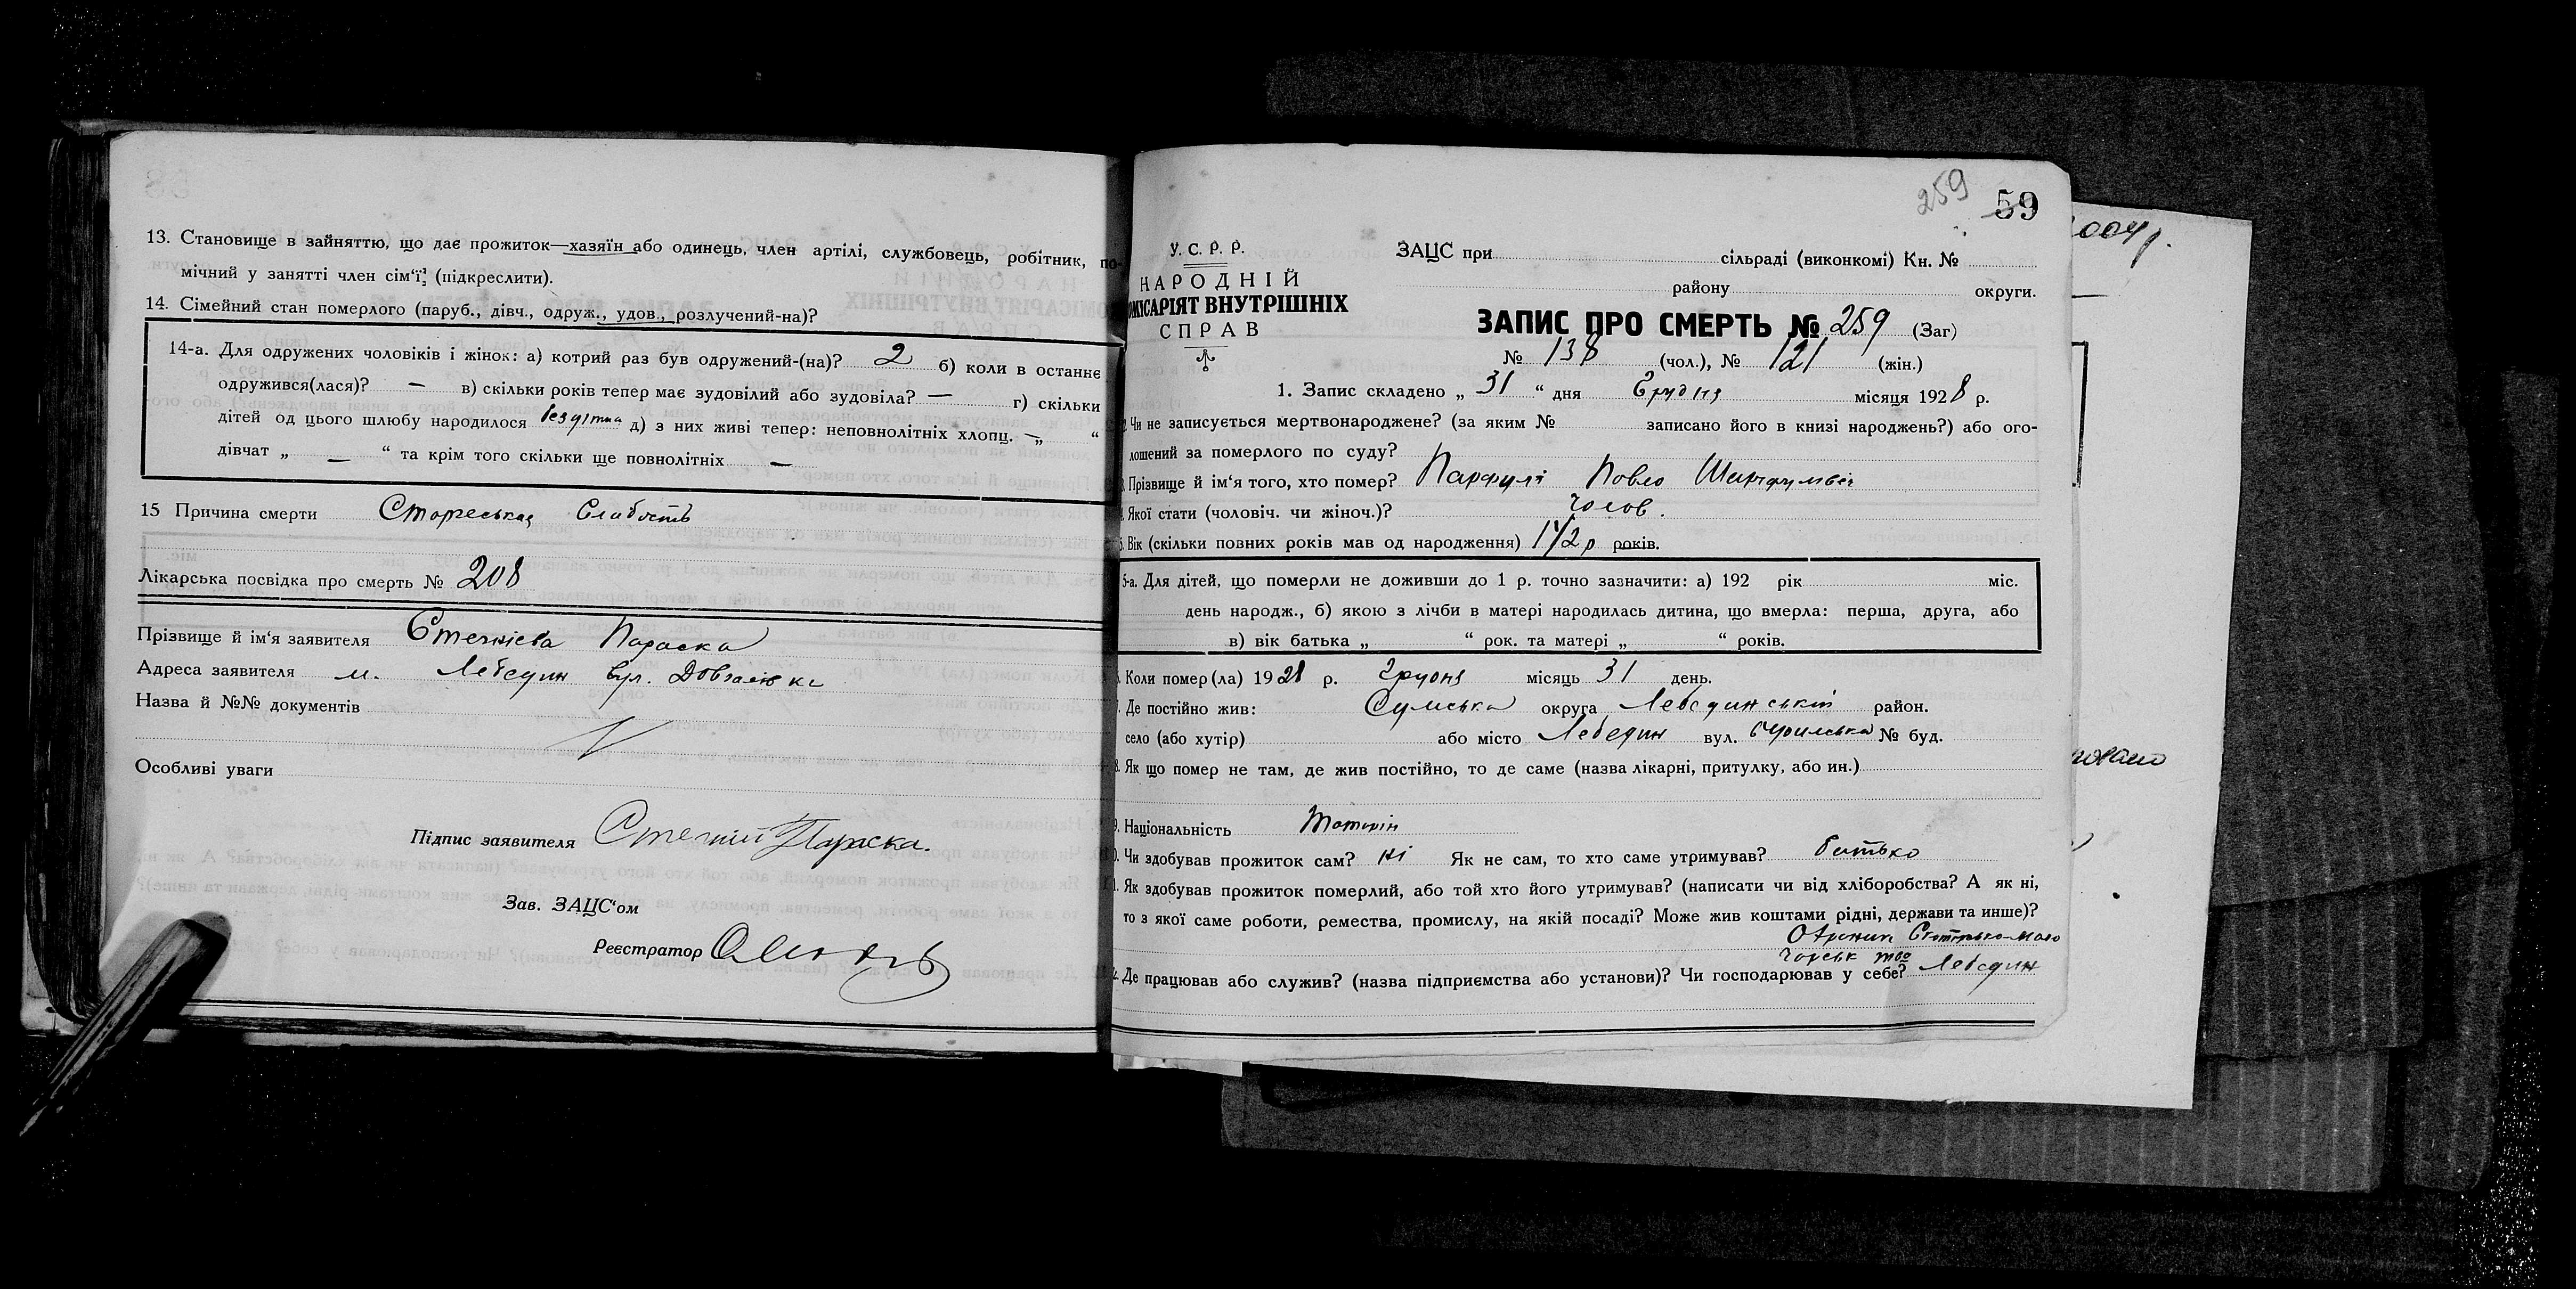 13. Становище в зайняттю, що дає прожиток—хазяїн або одинець, член артілі, службовець, робітник, по-
мічний у занятті член сім'ї? (підкреслити).
14. Сімейний стан померлого (паруб., дівч., одруж., удов., розлучений-на)?
14-а. Для одружених чоловіків і жінок: а) котрий раз був одружений-(на)? 2 б) коли в останнє
одружився(лася)? — в) скільки років тепер має зудовілий або зудовіла? — г) скільки
дітей од цього шлюбу народилося бездітна д) з них живі тепер: неповнолітніх хлопц. — „ “
дівчат „ — “ та крім того скільки ще повнолітніх —
15 Причина смерти Старческая Слабость
Лікарська посвідка про смерть № 208
Прізвище й ім'я заявителя Параска
Адреса заявителя м. Лебедин вул.
Назва й №№ документів
Особливі уваги
Підпис заявителя Параска.
Зав. ЗАЦС'ом
Реєстратор
259 59
У. С. Р. Р.
НАРОДНІЙ
ОМІСАРІЯТ ВНУТРІШНІХ
СПРАВ
ЗАЦС при сільраді (виконкомі) Кн. №
району округи.
ЗАПИС ПРО СМЕРТЬ № 259 (Заг)
№ 138 (чол.), № 121 (жін.)
1. Запис складено „ 31 “ дня Грудня місяця 1928 р.
Чи не записується мертвонароджене? (за яким № записано його в книзі народжень?) або ого-
лошений за померлого по суду?
Прізвище й ім'я того, хто помер? Павло
Якої стати (чоловіч. чи жіноч.)? Чолов.
Вік (скільки повних років мав од народження) 1 1/2 р років.
5-а. Для дітей, що померли не доживши до 1 р. точно зазначити: а) 192 рік міс.
день народж., б) якою з лічби в матері народилась дитина, що вмерла: перша, друга, або
в) вік батька „ “ рок. та матері „ “ років.
Коли помер(ла) 1928 р. Грудня місяць 31 день.
Де постійно жив: Сумська округа Лебединський район.
село (або хутір) або місто Лебедин вул. № буд.
Як що помер не там, де жив постійно, то де саме (назва лікарні, притулку, або ин.)
Національність Татарін
Чи здобував прожиток сам? ні Як не сам, то хто саме утримував? батько
Як здобував прожиток померлий, або той хто його утримував? (написати чи від хліборобства? А як ні,
то з якої саме роботи, ремества, промислу, на якій посаді? Може жив коштами рідні, держави та инше)?
Де працював або служив? (назва підприємства або установи)? Чи господарював у себе? Лебедин